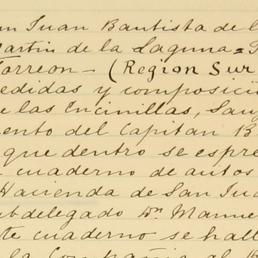 an Juan Bautista de l
Martin de la Laguna = 
Torreon — (Region Sur
edidas y composició
e las Encinillas, San
ento del Capitan B
que dentro se espre
cuaderno de autos
Hacienda de San Jua
ubdelegado Dn Manue
te cuaderno se hall
la Compañia al B